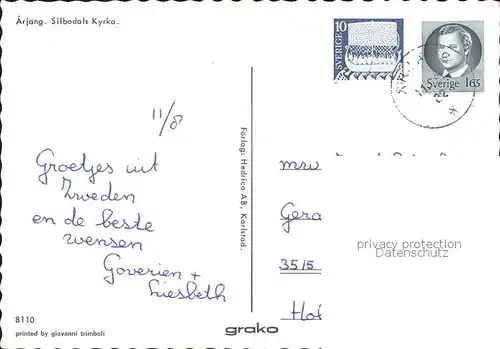 Årjäng. Silbodals Kyrka.
SVERIGE 10
Sverige 165
11/8
Groetjes uit
Zweden
en de beste
wensen
Goverien +
Liesbeth
Förlag: Hedrico AB, Karlstad.
mrw
Gera
3515
Hol
privacy protection
Datenschutz
8110
printed by giovanni trimboli
grako